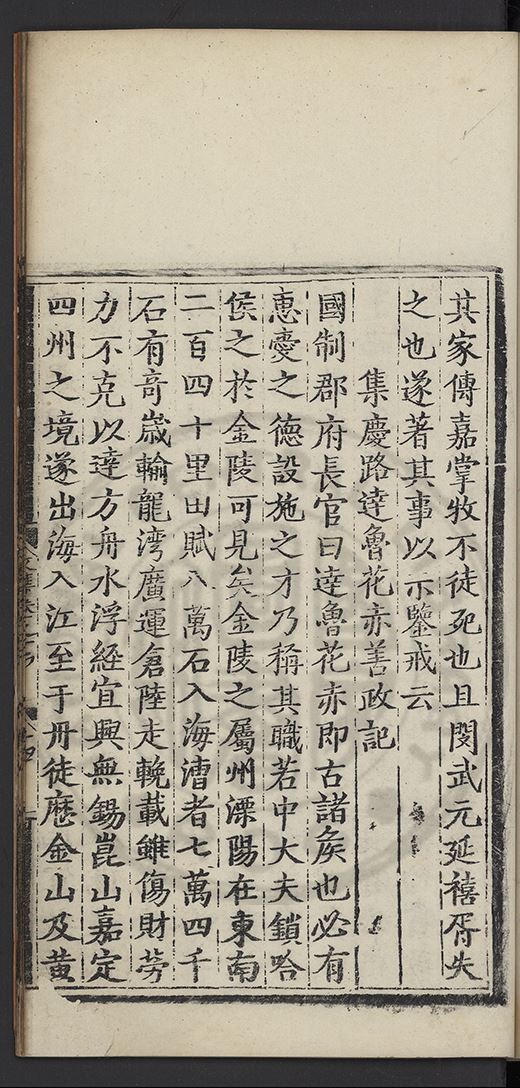 其家傳嘉掌牧不徒死也且閔武元延禧胥失
之也遂著其事以示鑒戒云
集慶路達魯花赤善政記
國制郡府長官曰達魯花赤即古諸矦也必有
惠慶之德設施之才乃稱其職若中大夫鎖咍
侯之於金陵可見矣金陵之屬州溧陽在東南
二百四十里田賦八萬石入海漕者七萬四千
石有竒歳輸龍湾廣運倉陸走輓載雖傷財勞
力不克以達方舟水浮經宜興無錫崑山嘉定
四州之境遂出海入江至于丹徒歷金山及黄